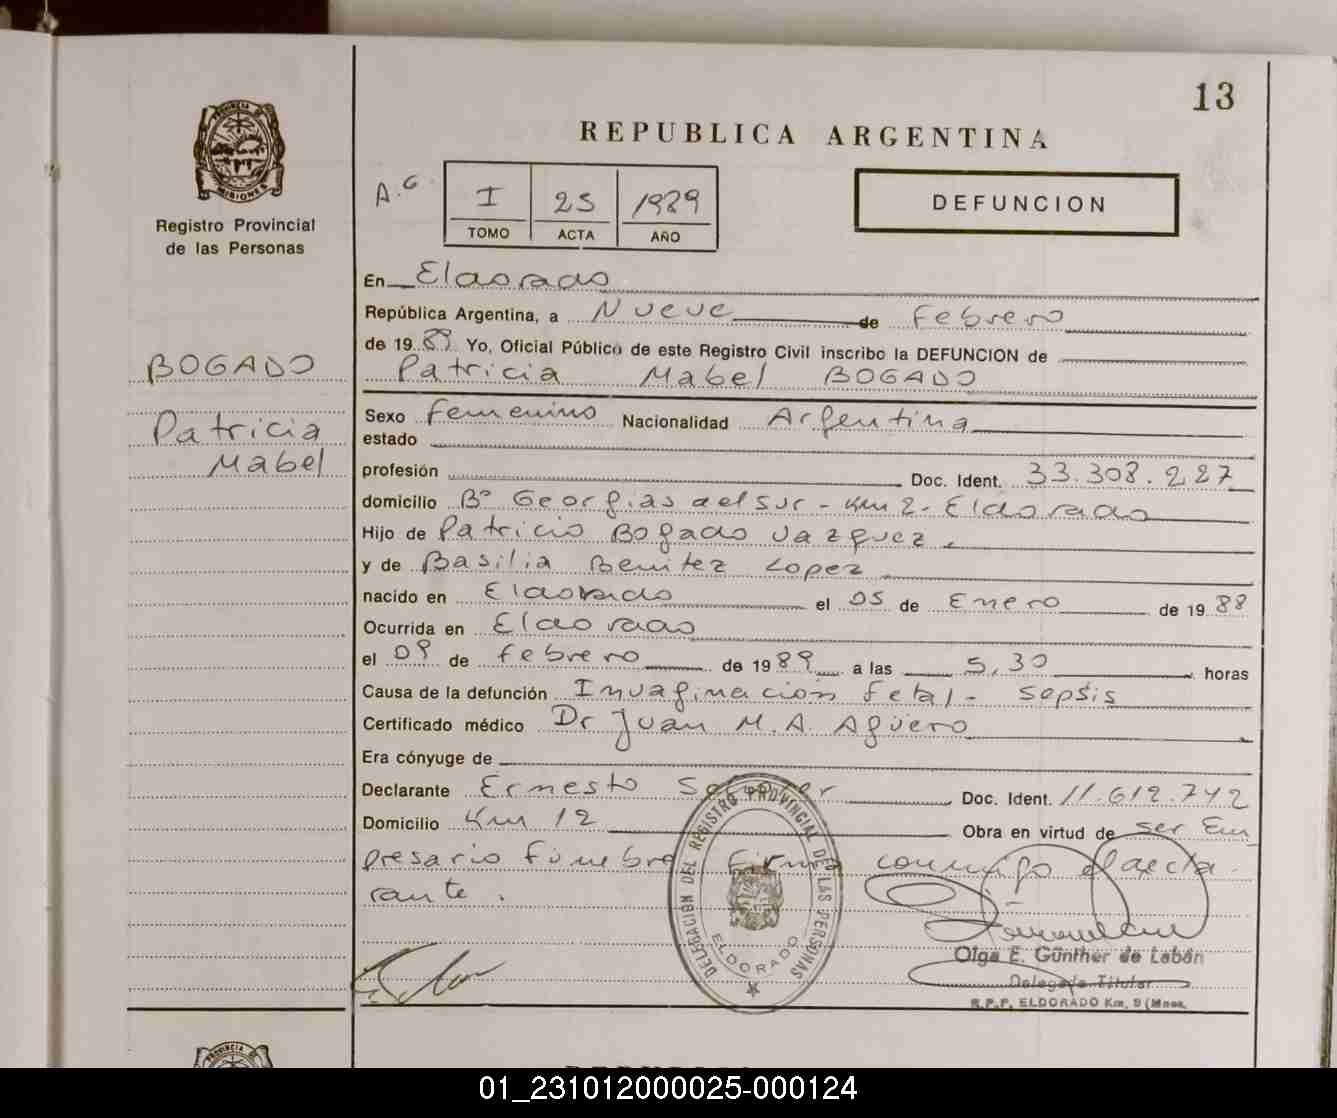 13
REPUBLICA ARGENTINA
PROVINCIA DE
MISIONES
Registro Provincial
de las Personas
A.G
I 25 1989
TOMO ACTA AÑO
DEFUNCION
BOGADO
Patricia
Mabel
En Eldorado
República Argentina, a Nueve de Febrero
de 1989 Yo, Oficial Público de este Registro Civil inscribo la DEFUNCION de
Patricia Mabel BOGADO
Sexo Femenino Nacionalidad Argentina
estado
profesión Doc. Ident. 33.308.227
domicilio Bº Georgias del Sur - Km 2 - Eldorado
Hijo de Patricio Bogado Vazquez
y de Basilia Benitez Lopez
nacido en Eldorado el 05 de Enero de 1988
Ocurrida en Eldorado
el 09 de Febrero de 1989 a las 5,30 horas
Causa de la defunción Invaginacion fetal - sepsis
Certificado médico Dr Juan M.A. Agüero
Era cónyuge de
Declarante Ernesto Doc. Ident. 11.612.742
Domicilio Km 12 Obra en virtud de ser Em
presario Fúnebre Firma conmigo el decla-
rante.
DELEGACIÓN DEL REGISTRO PROVINCIAL DE LAS PERSONAS
ELDORADO
Olga E. Günther de Labán
Delegada Titular
R.P.P. ELDORADO Km. 9 (Mnes.
01_231012000025-000124